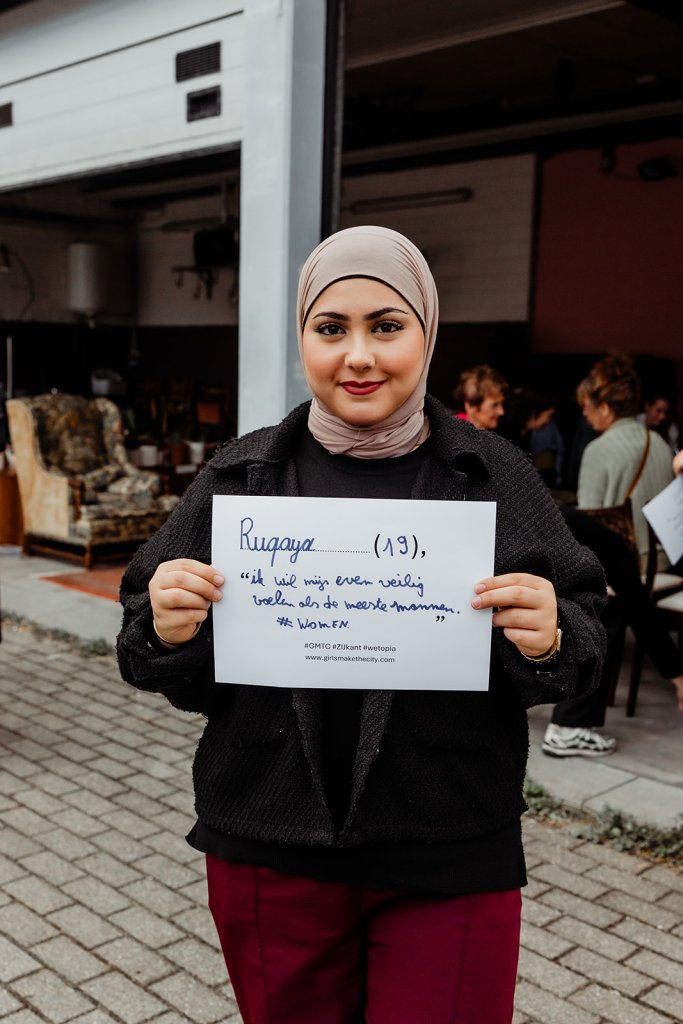 Ruqaya (19),
"ik wil mijs even veilig
voelen als de meeste mannen.
#WOMEN "
#GMTC #ZIJkant #wetopia
www.girlsmakethecity.com